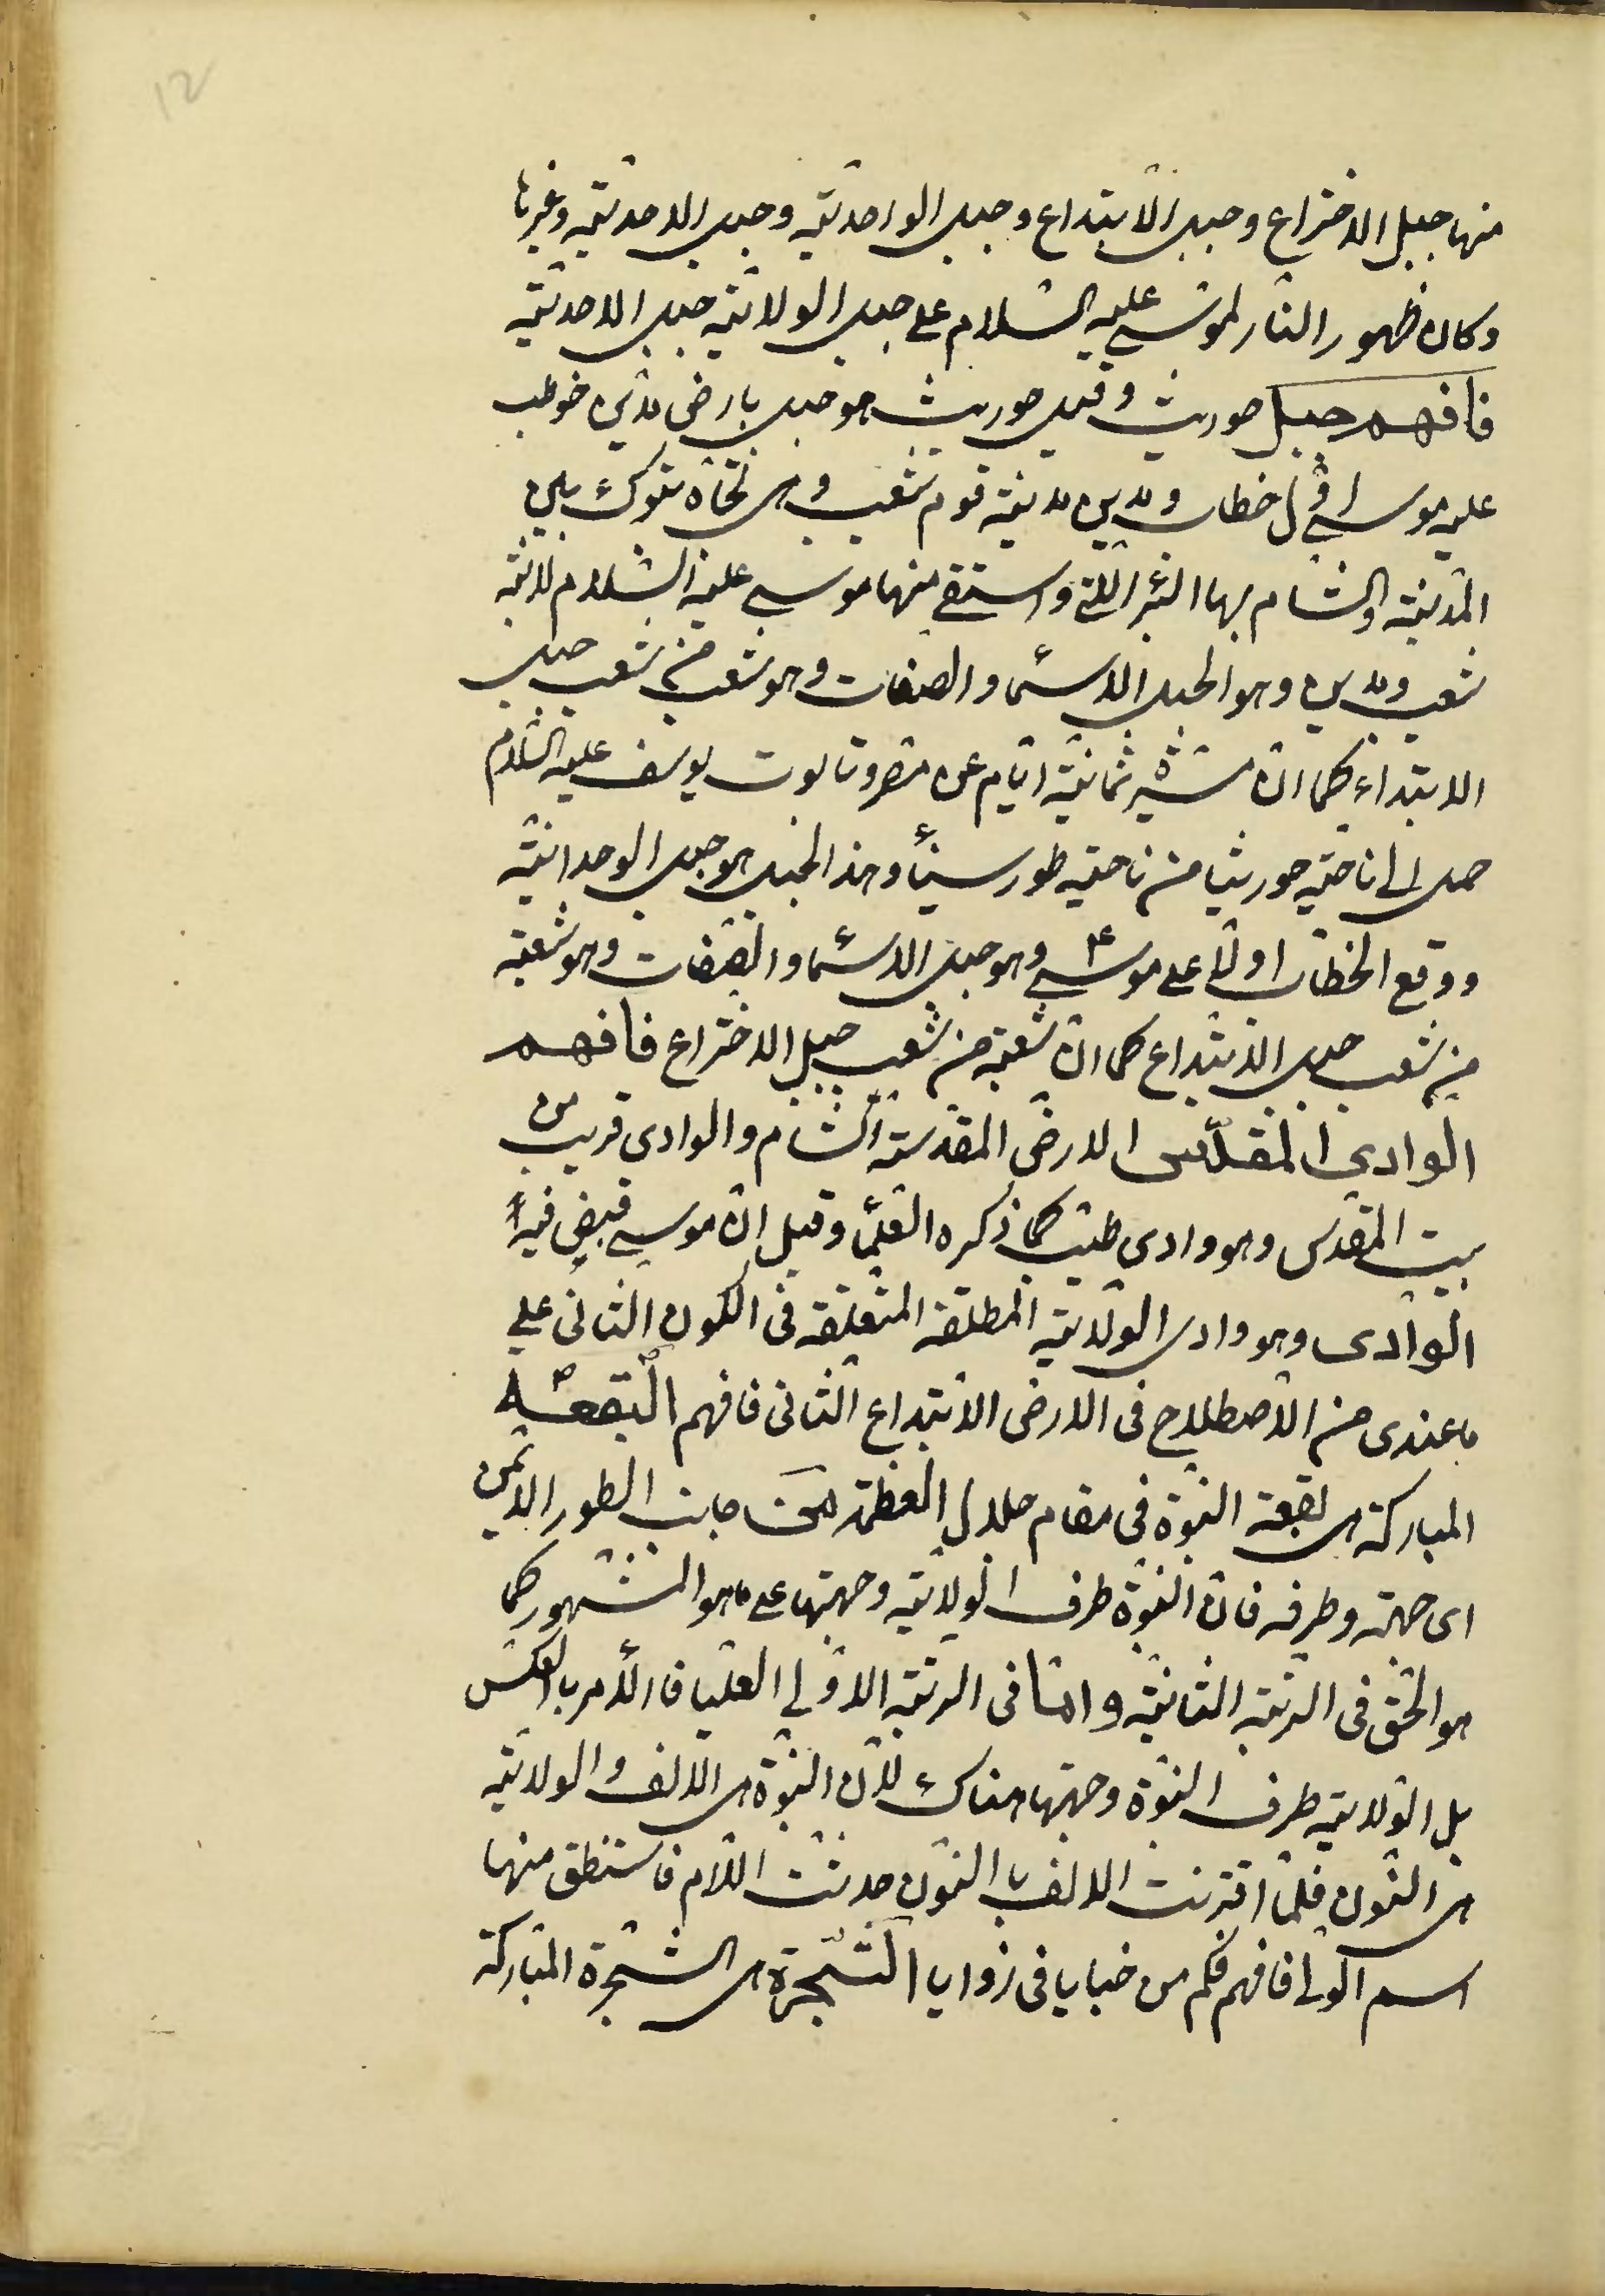 12
منها جبل الاختراع وجبل الابتداع وجبل الواحدیّه وجبل الاحدیّه وغیرها
وکان ظهور النّار لموسی علیه السّلام علی جبل الولایّه جبل الاحدیّه
فافهم جبل حوریث وقیل حوریث هو جبل بارض مدین خوطب
علیه موسی اوّل خطاب ومدین مدینة قوم شعیب وهی تجاه تبوک بین
المدینة والشام بها البئر اللّتی واستقی منها موسی علیه السّلام لابنة
شعیب ومدین وهو الجبل الاسماء والصفات وهو شعب من شعب جبل
الابتداء کما انّ مسیره ثمانیة ایّام عن مصر وتابوت یوسف علیه السّلام
حمل الی ناحیة حوریثا من ناحیة طور سیناء وهذا الجبل هو جبل الوحدانیّة
ووقع الخطاب اولا علی موسی ع وهو جبل الاسماء والصّفات وهو شعبة
من شعب جبل الابتداع کما انّ شعبة من شعب جبل الاختراع فافهم
الوادی المقدّس الارض المقدّسة الشام والوادی قریب من
بیت المقدس وهو وادی طیّب کما ذکره العلماء وقیل انّ موسی قبض فیه
الوادی وهو وادی الولایة المطلقة المتعلّقة فی الکون الثانی علی
ما عندی من الاصطلاح فی الارض الابتداع الثانی فافهم البقعة
المبارکة هی بقعة النبوّة فی مقام جلال العظمة من جانب الطور الایمن
ای جهته وطرفه فانّ النبوّة طرف الولایّة وجهتها علی ما هو المشهور کما
هو الحقّ فی الرتبة الثانیّة وامّا فی الرتبة الاولی العلیا فالامر بالعکس
بل الولایة طرف النبوّة وجهتها هناک لانّ النبوّة هی الالف والولایّة
هی النّون فلمّا اقترنت الالف بالنّون حدثت اللام فاستنطق منها
اسم الولی فافهم فکم من خبایا فی زوایا الشّجرة هی الشجرة المبارکة